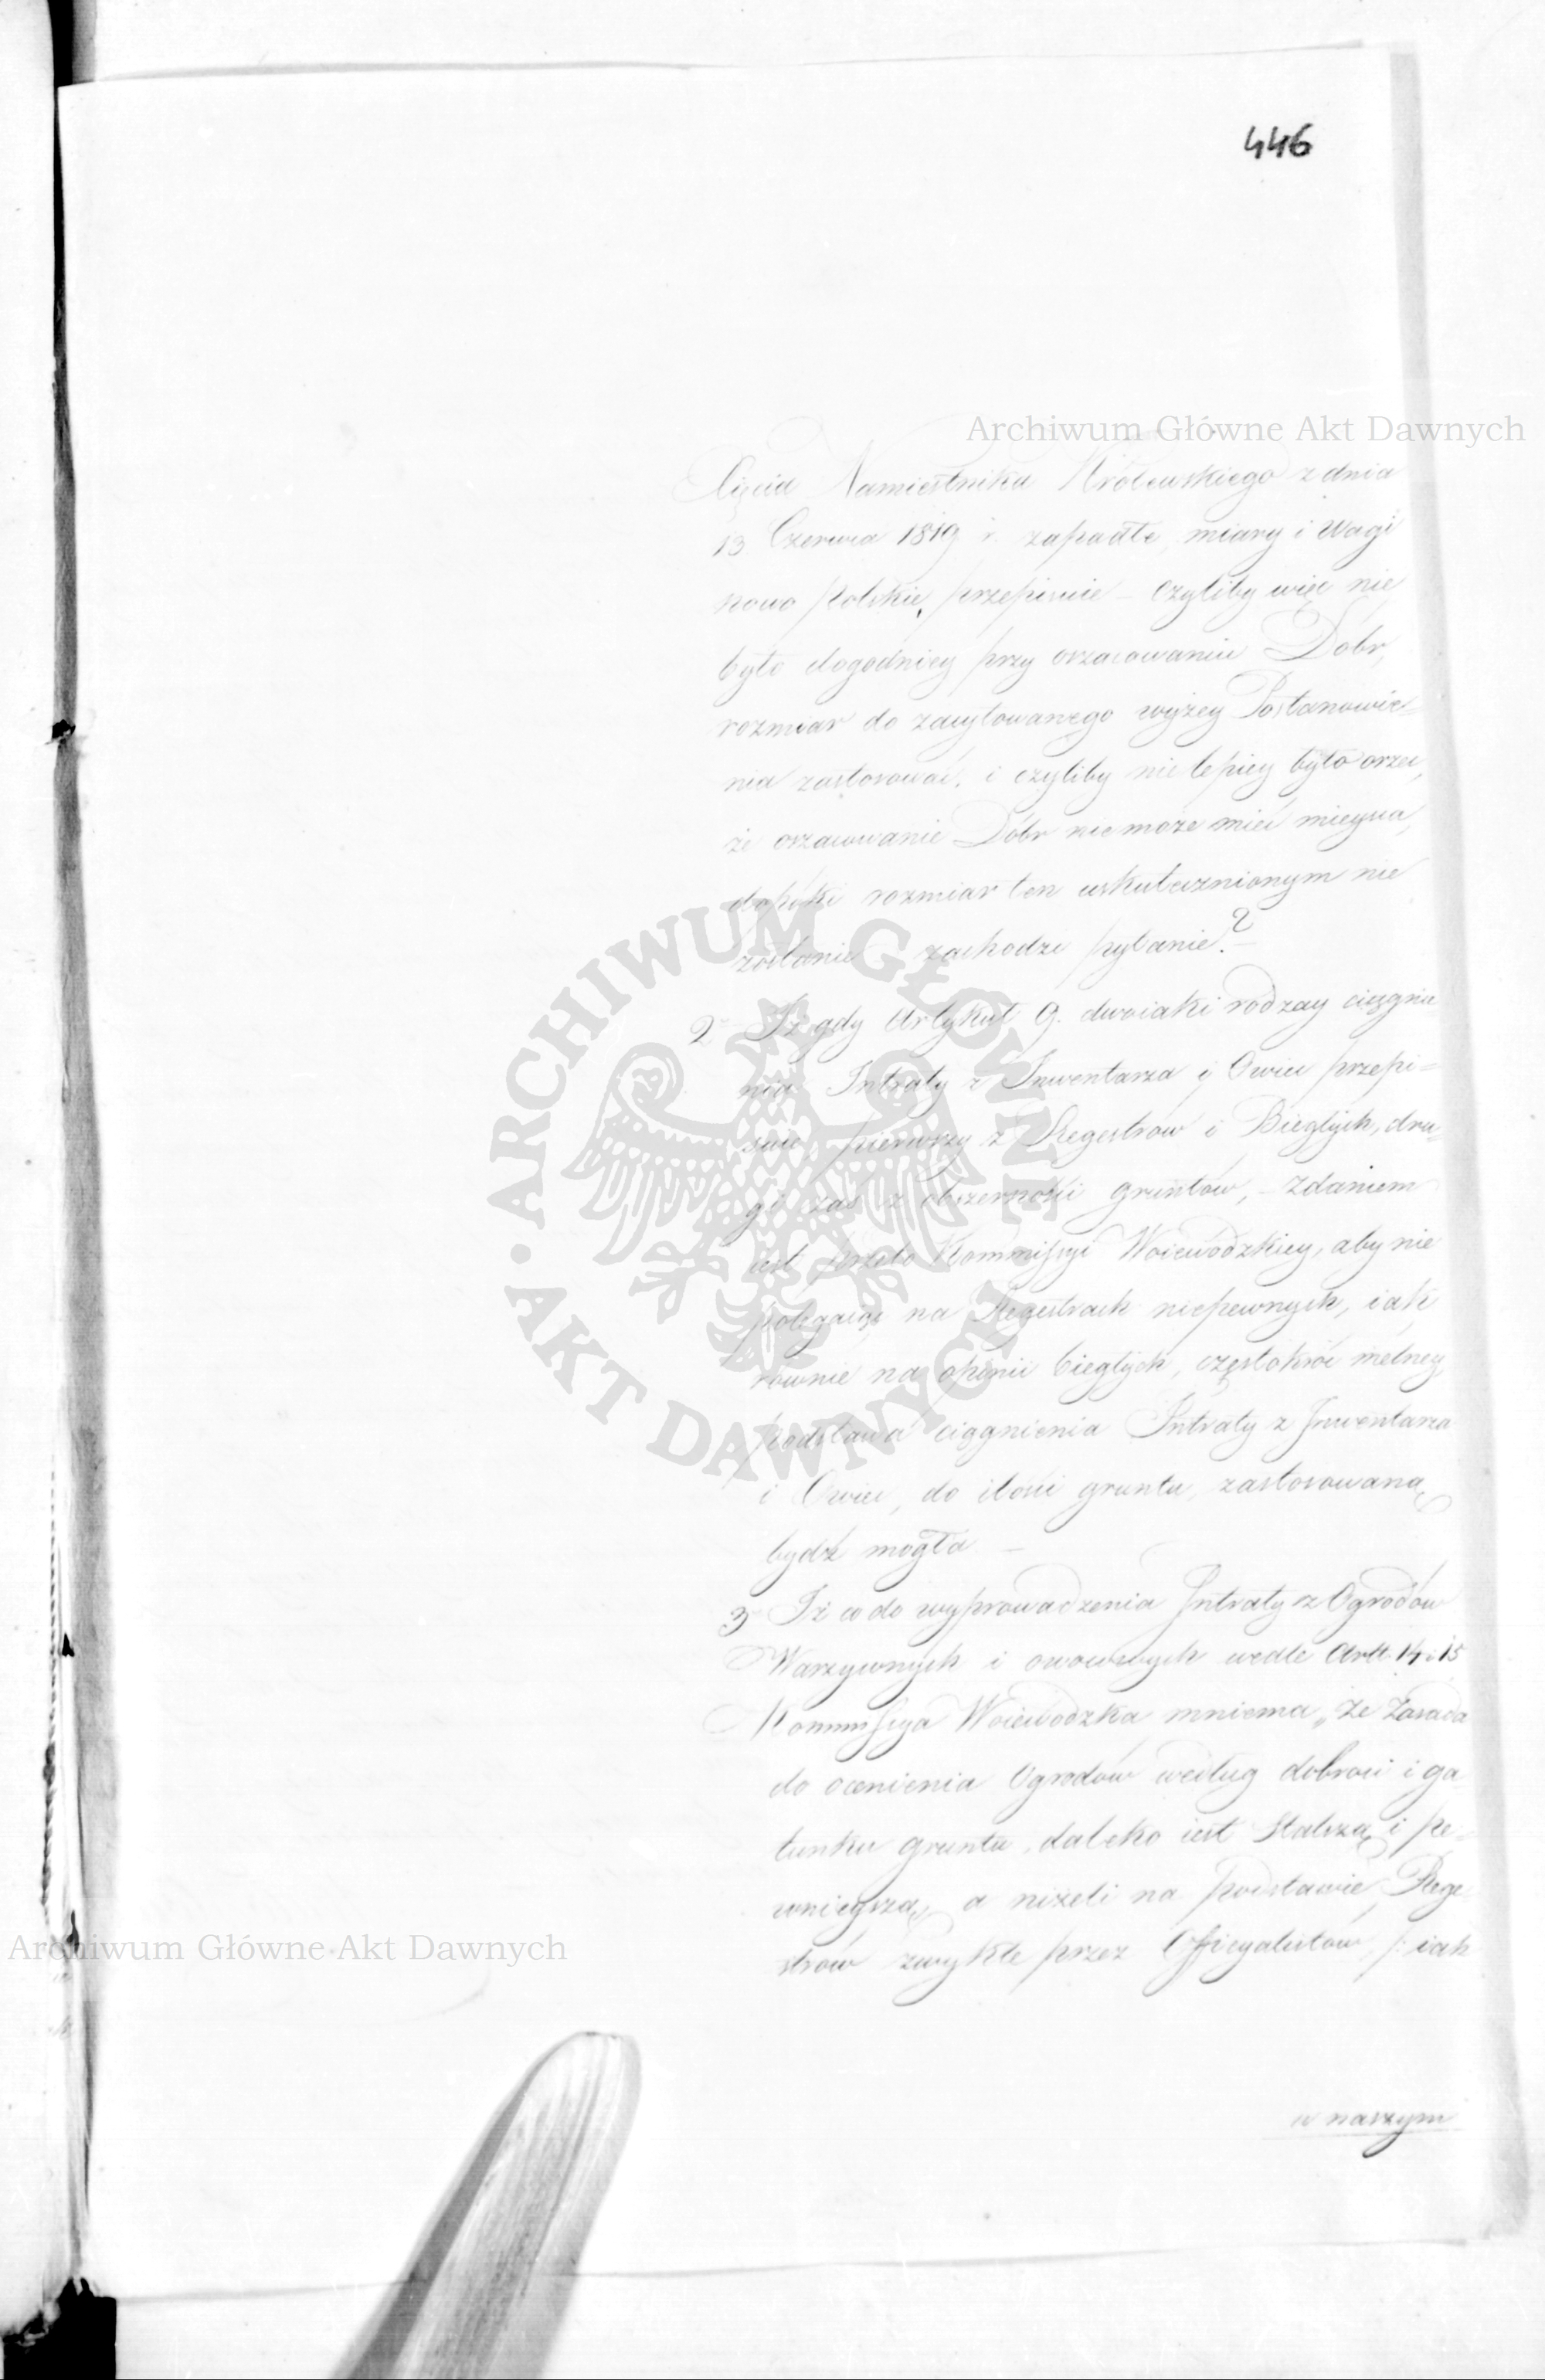 446
Archiwum Główne Akt Dawnych
Xięcia Namiestnika Królewskiego z dnia
13 Czerwca 1819 r. zapadłe, miary i wagi
nowo Polskie, przepisuie – czyliby więc nie
było dogodniey przy oszacowaniu Dóbr,
rozmiar do zacytowanego wyżey Postanowie=
nia zastosować, i czyliby nie lepiey było orzec,
że oszacowanie Dóbr nie może mieć mieysca,
dopóki rozmiar ten uskutecznionym nie
zostanie – zachodzi pytanie?
2o Iż gdy Artykuł 9. dwoiaki rodzay ciągnie
nia Intraty z Inwentarza i Owiec przepi=
suie, pierwszy z Regestrów i Biegłych, dru=
gi zaś z obszerności gruntów, – Zdaniem
iest przeto Kommissyi Woiewodzkiey, aby nie
polegaiąc na Regestrach niepewnych, iak
równie na opinii biegłych, częstokroć mylney
podstawa ciągnienia Intraty z Inwentarza
i Owiec, do ilości gruntu, zastosowaną
bydź mogła –
3o Iż co do wyprowadzenia Intraty z Ogrodów
Warzywnych i owocowych wedle Artt. 14 i 15
Kommissya Woiewodzka mniema, że Zasada
do ocenienia Ogrodów według dobroci i ga
tunku gruntu, daleko iest stalszą i pe=
wnieyszą, a niżeli na podstawie Rege
strów zwykle przez Officyalistów, /: iak
Archiwum Główne Akt Dawnych
w naszym
ARCHIWUM GŁÓWNE · AKT DAWNYCH ·